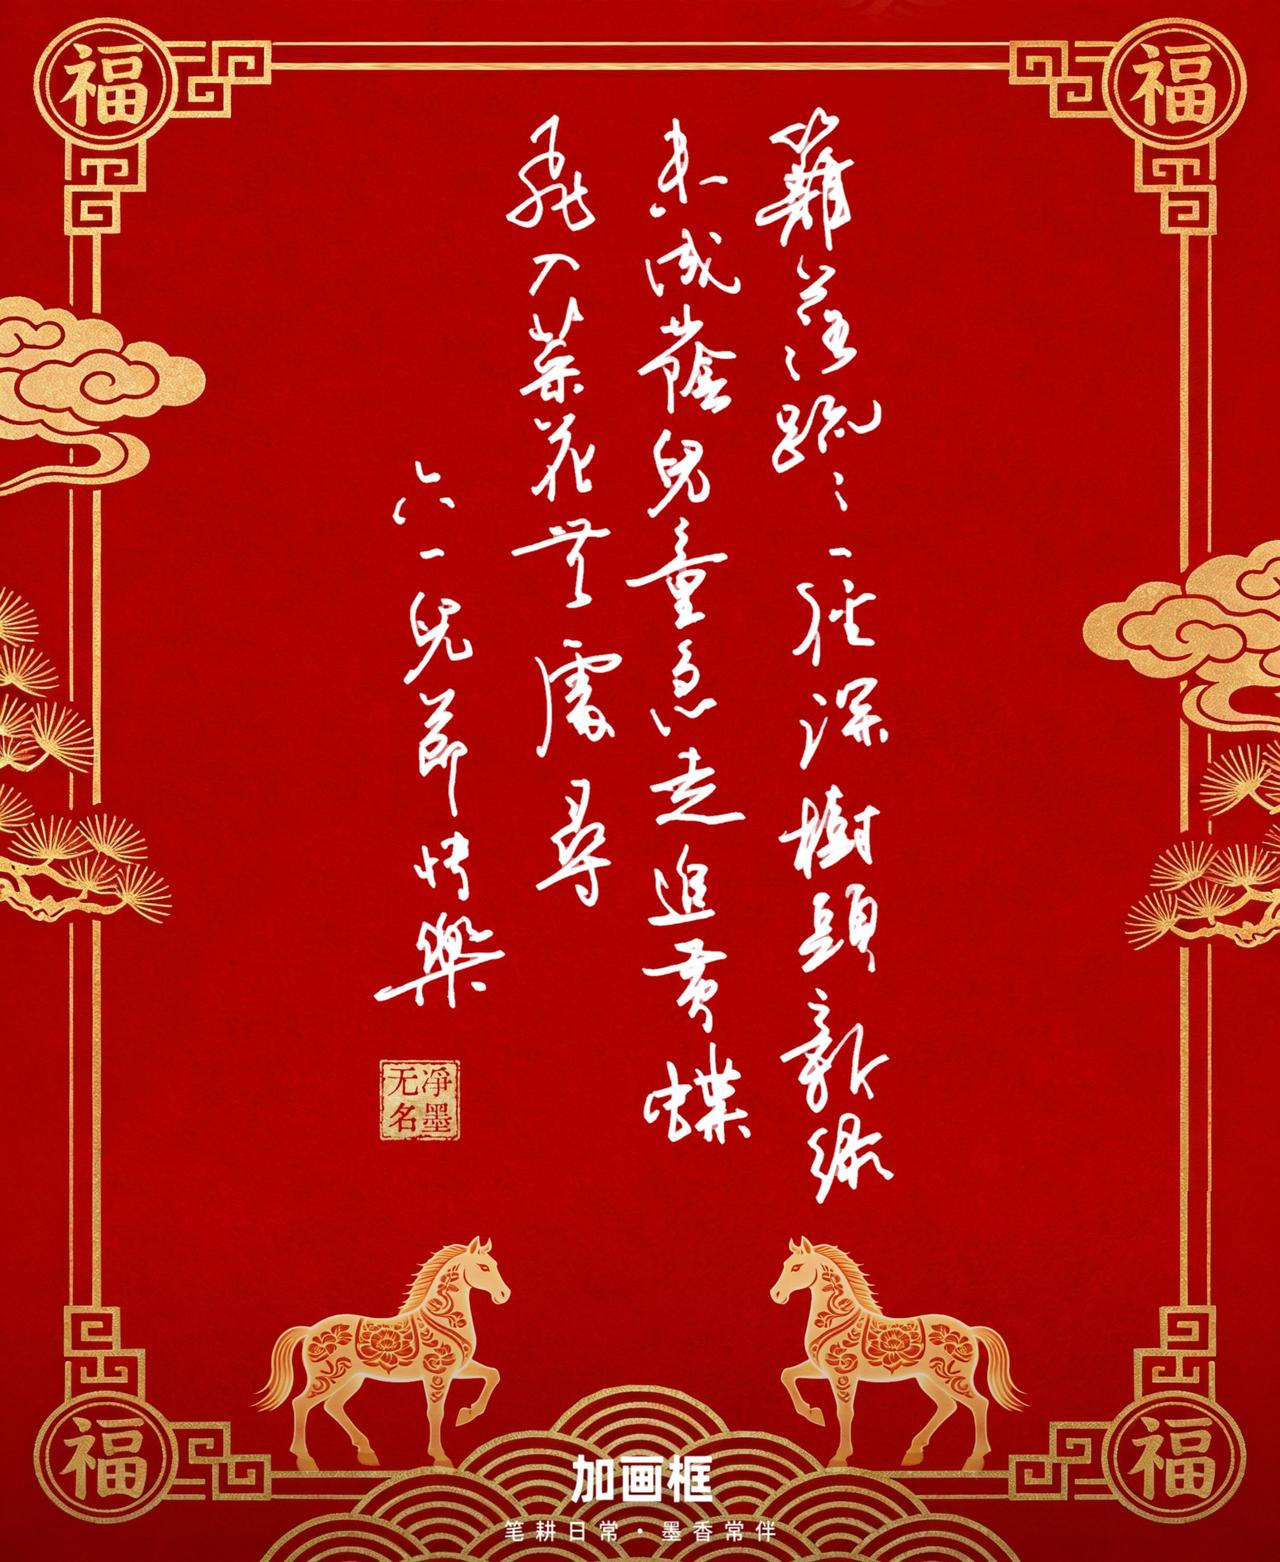 福
福
籬落疏〻一徑深樹頭新綠
未成蔭兒童急走追黃蝶
飛入菜花無處尋
六一兒節快樂
净墨
无名
福
福
加画框
笔耕日常·墨香常伴